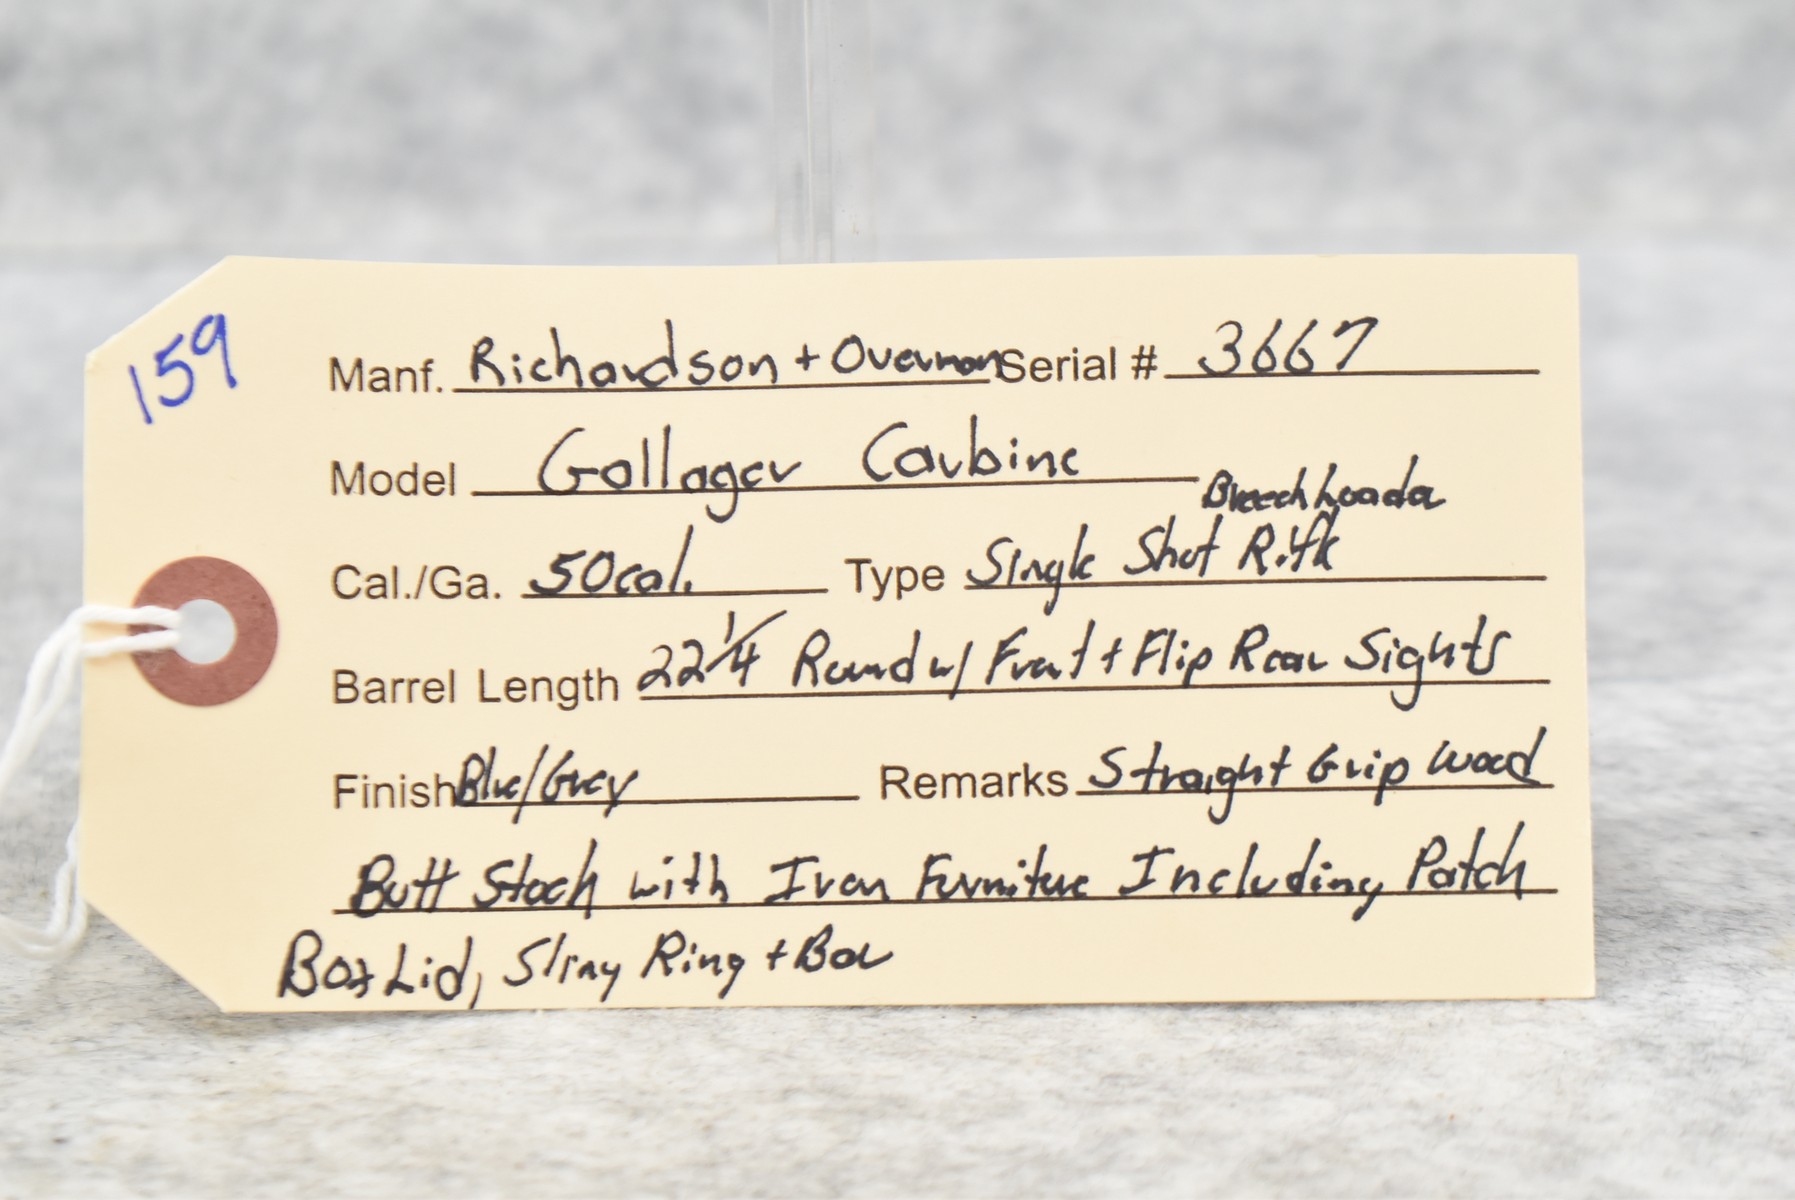 159
Manf. Richardson + Overman Serial # 3667
Model Gallager Carbine
Breech Loader
Cal./Ga. 50 cal. Type Single Shot Rifle
Barrel Length 22 1/4 Round w/ Front + Flip Rear Sights
Finish Blue/Grey Remarks Straight Grip Wood
Butt Stock with Iron Furniture Including Patch
Box Lid, Sling Ring + Bar